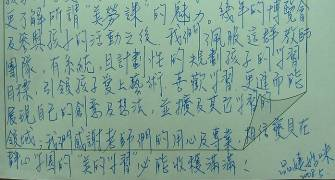 更了解所謂"美勞課"的魅力。幾年的博覽會
及參與孩子的活動之後,我們佩服這群教師
團隊,有系統、且計劃性的規劃孩子的學習
目標,引領孩子愛上藝術,喜歡學習,更進而能
展現自己的創意及想法,並擴及其它學習的
領域。我們感謝老師們的用心及專業,相信發貝在
心學園的"美的學習"必能收穫滿滿!
媽咪